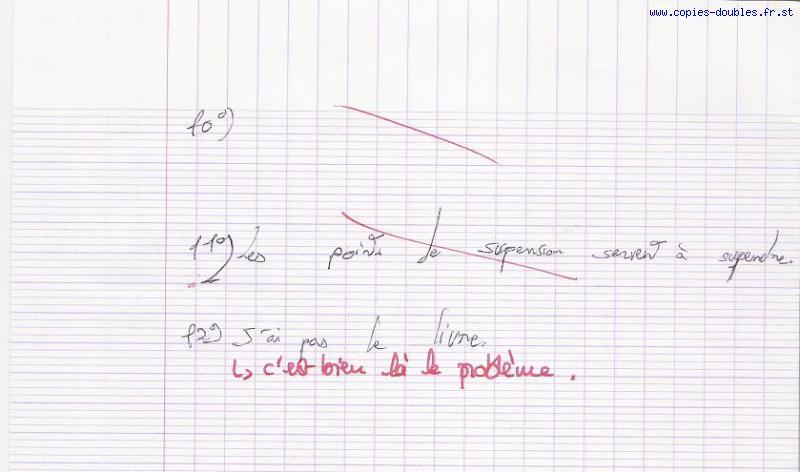 www.copies-doubles.fr.st
10°)
11°) Les points de suspension servent à supendre.
12°) J'ai pas le livre.
↳ c'est bien là le problème.